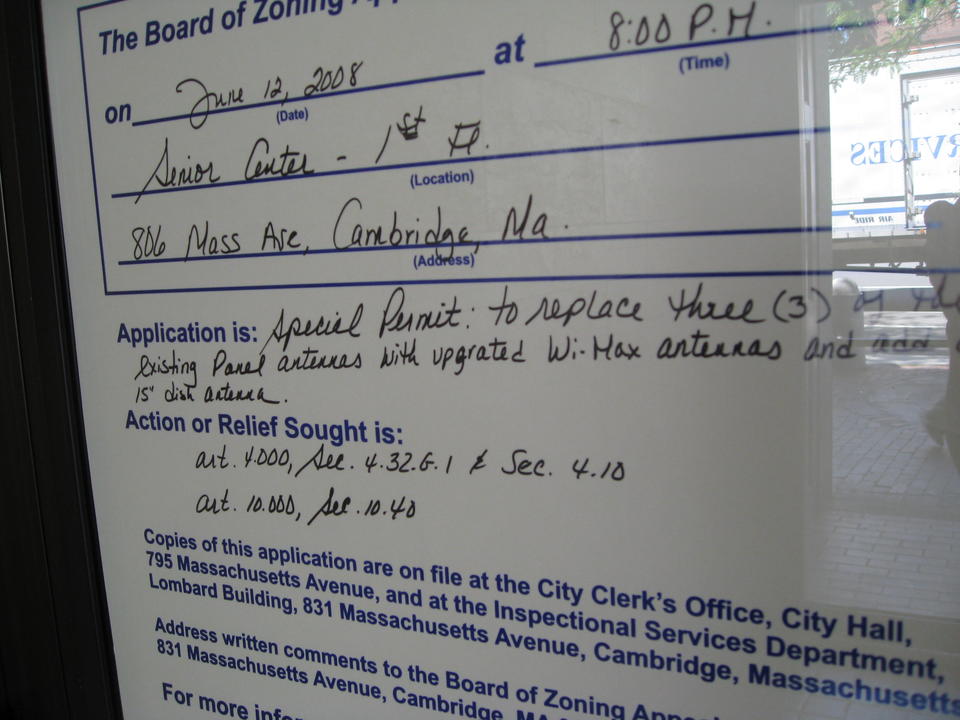 The Board of Zoning
on June 12, 2008 at 8:00 P.M.
(Date) (Time)
Senior Center - 1st Fl.
(Location)
806 Mass Ave, Cambridge, Ma.
(Address)
Application is: Special Permit: to replace three (3) of the
existing Panel antennas with upgrated Wi-Max antennas and add
15" dish antenna.
Action or Relief Sought is:
art. 4.000, Sec. 4.32.G.1 & Sec. 4.10
art. 10.000, Sec. 10.40
Copies of this application are on file at the City Clerk's Office, City Hall,
795 Massachusetts Avenue, and at the Inspectional Services Department,
Lombard Building, 831 Massachusetts Avenue, Cambridge, Massachusetts
Address written comments to the Board of Zoning
831 Massachusetts Avenue, Cambridge, MA
For more
AIR RIDE